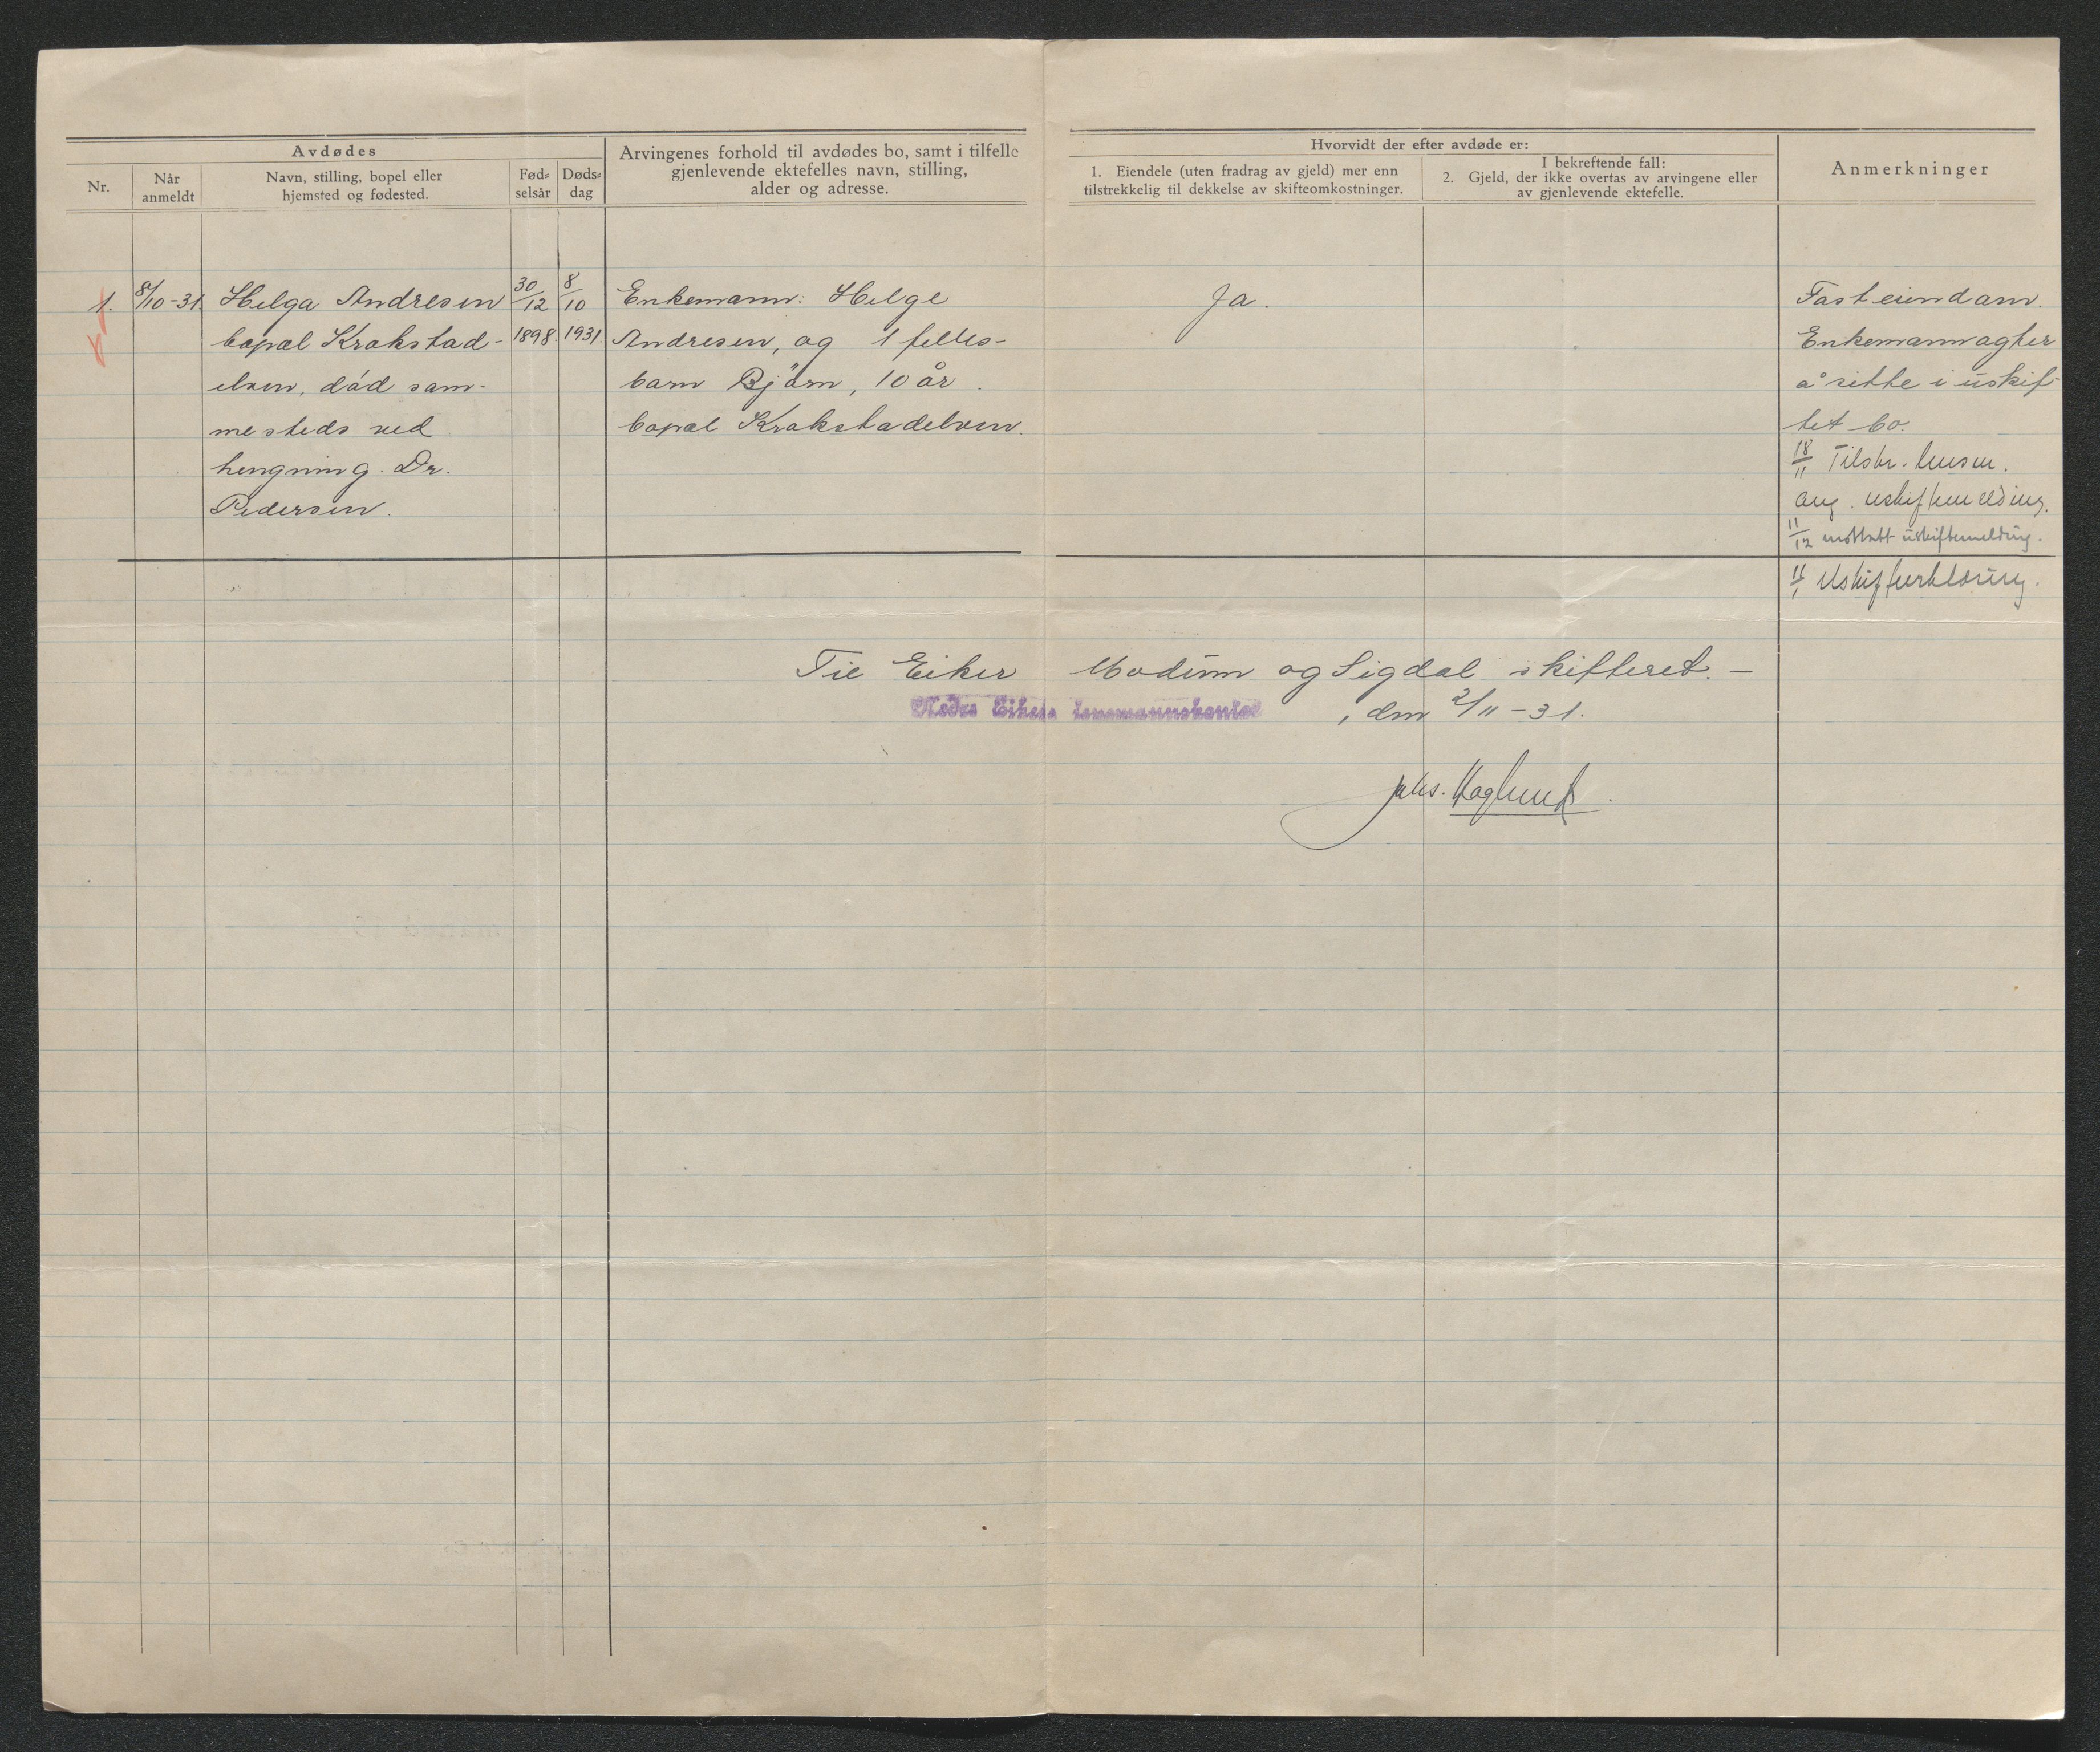 Avdødes
Nr.
Når
anmeldt
Navn, stilling, bopel eller
hjemsted og fødested.
Fød-
selsår
Døds-
dag
Arvingenes forhold til avdødes bo, samt i tilfelle
gjenlevende ektefelles navn, stilling,
alder og adresse.
Hvorvidt der efter avdøde er:
1. Eiendele (uten fradrag av gjeld) mer enn
tilstrekkelig til dekkelse av skifteomkostninger.
I bekreftende fall:
2. Gjeld, der ikke overtas av arvingene eller
av gjenlevende ektefelle.
Anmerkninger
1.
8/10-31.
Helga Andresen
bopæl Krokstad-
elven, død sam-
mesteds ved
hengning. Dr.
Pedersen.
30/12
1898.
8/10
1931.
Enkemann: Helge
Andresen, og 1 felles-
barn Björn, 10 år.
bopæl Krokstadelven.
Ja.
Fast eiendom.
Enkemann agter
å sitte i uskif-
tet bo.
18/11 Tilskr. lensm.
ang. uskiftemelding.
11/12 mottatt uskiftemelding.
Uskifteerklæring.
Til Eiker Modum og Sigdal skifteret. -
Nedre Eikers lensmannskontor, den 2/11-31.
Johs. Haglund.